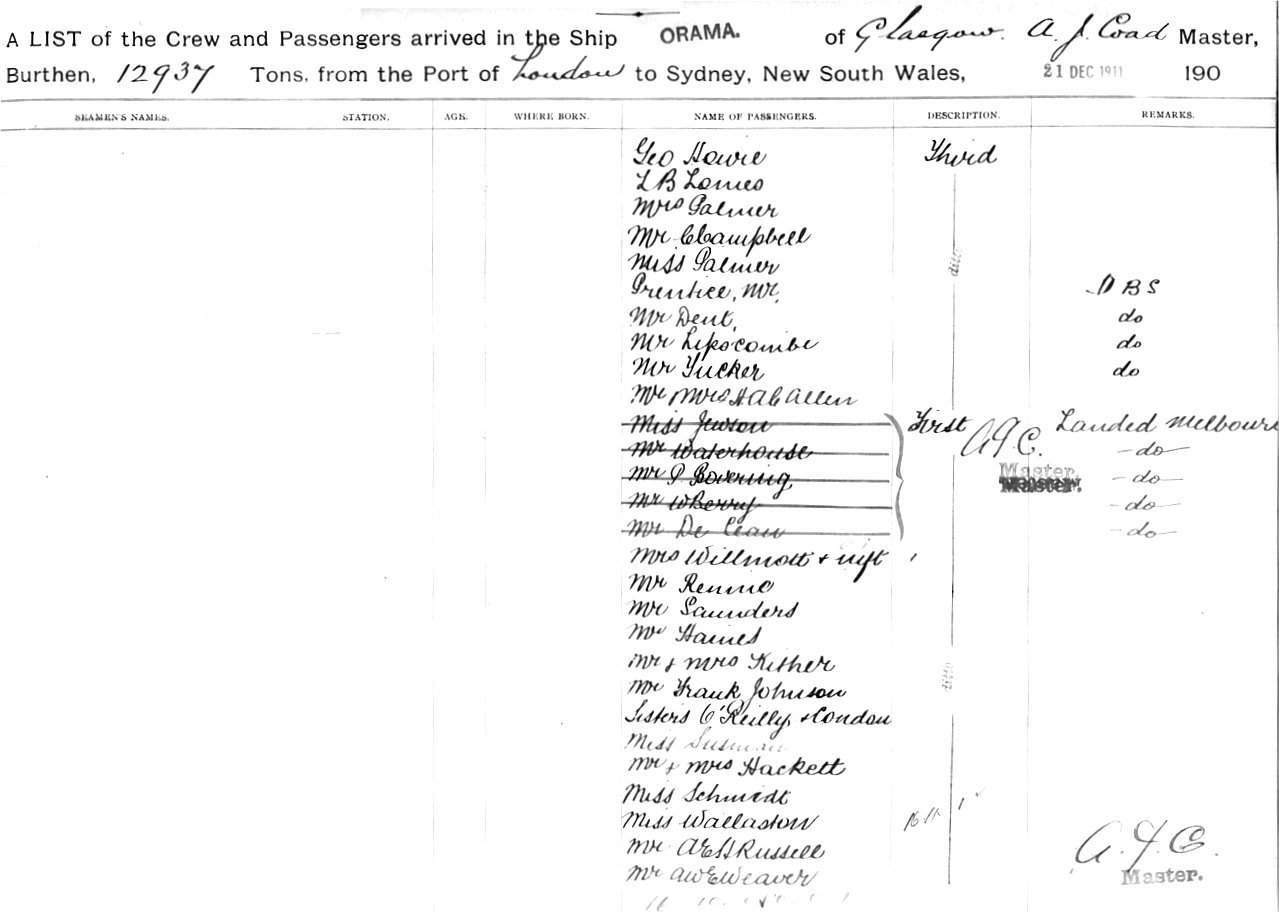 A LIST of the Crew and Passengers arrived in the Ship ORAMA. of Glasgow. A. J. Coad Master,
Burthen, 12937 Tons, from the Port of London to Sydney, New South Wales, 21 DEC 1911 190
SEAMEN'S NAMES. STATION. AGE. WHERE BORN. NAME OF PASSENGERS. DESCRIPTION. REMARKS.
Geo Howie Third
L B Lomes
Mrs Palmer
Mr C Campbell
Miss Palmer ditto
Prentice, Mr. D B S
Mr Dent, do
Mr Lipscombe do
Mr Tucker do
Mr Mrs H A C Allen
Miss Jewson First Landed Melbourn
Mr Waterhouse A J C. - do -
Mr P Bovering Master. - do -
Mr W Berry Master. - do -
Mr De - do -
Mrs Willmott &
Mr Rennie
Mr Saunders
Mr Haines
Mr & Mrs Kither
Mr Frank Johnson ditto
Sisters O'Reilly, & Condon
Miss Susman
Mr & Mrs Hackett
Miss Schmidt
Miss Wallaston
Mr A E H Russell A. J. C.
Mr A W E Weaver Master.